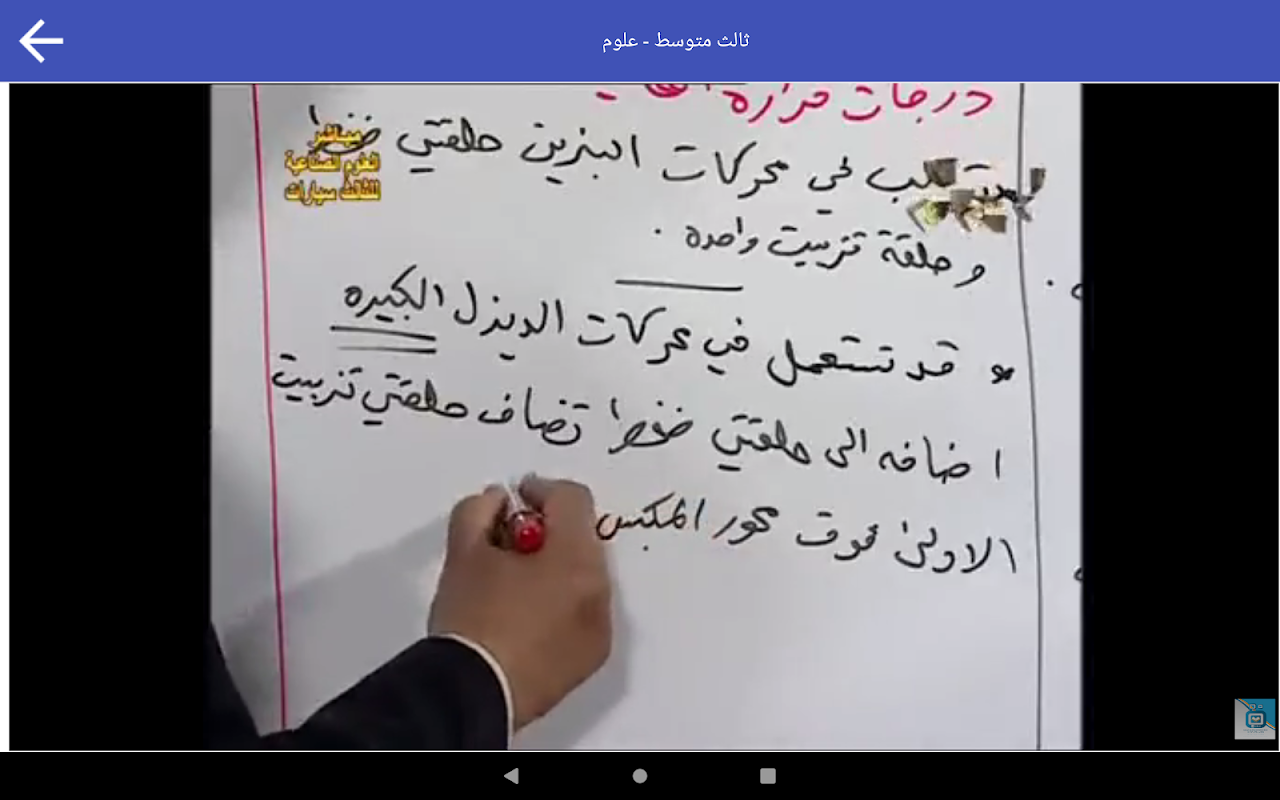 ثالث متوسط - علوم
درجات حرارة
مباشر
العلوم الصناعية
للثالث سيارات
في محركات البنزين حلقتي ضغط
و حلقة تزييت واحده .
* قد تستعمل في محركات الديزل الكبيره
اضافه الى حلقتي ضغط تضاف حلقتي تزييت
الاولى فوق محور المكبس